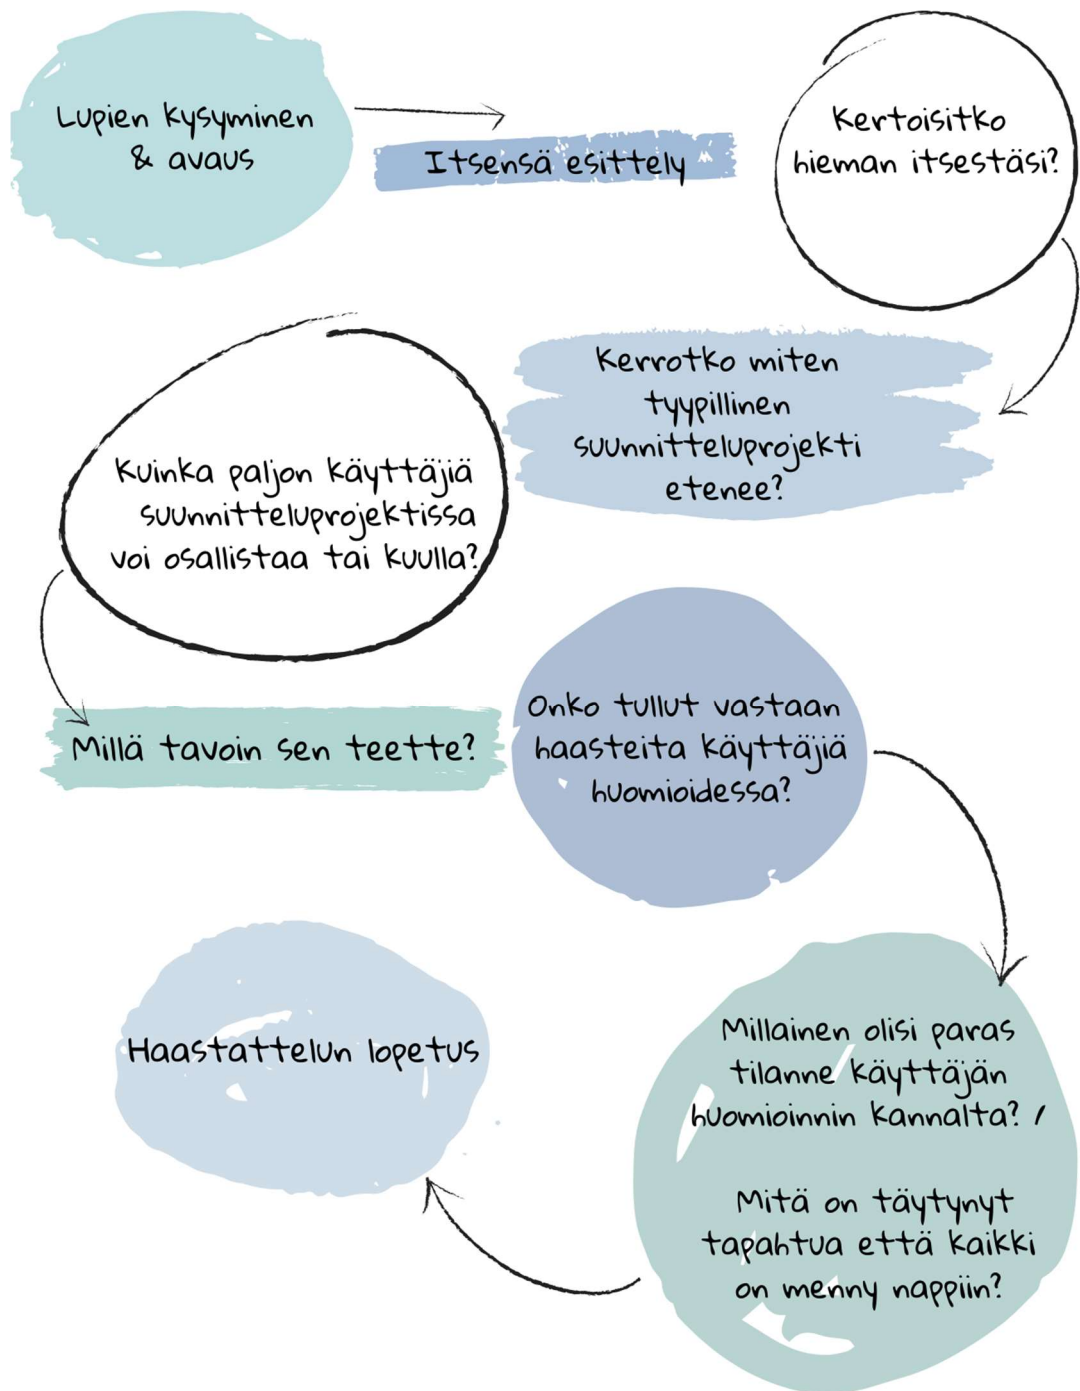 Lupien kysyminen
& avaus
Itsensä esittely
Kertoisitko
hieman itsestäsi?
Kerrotko miten
tyypillinen
suunnitteluprojekti
etenee?
Kuinka paljon käyttäjiä
suunnitteluprojektissa
voi osallistaa tai kuulla?
Millä tavoin sen teette?
Onko tullut vastaan
haasteita käyttäjiä
huomioidessa?
Millainen olisi paras
tilanne käyttäjän
huomioinnin kannalta? /
Mitä on täytynyt
tapahtua että kaikki
on menny nappiin?
Haastattelun lopetus